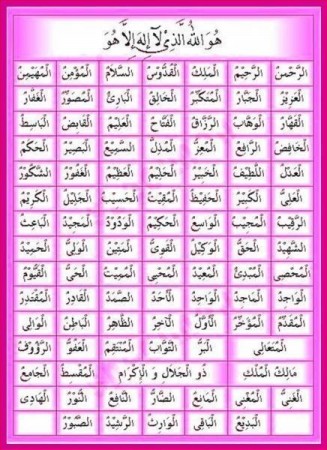 هُوَ اللهُ الَّذِيْ لَآ إِلٰهَ إِلَّا هُوَ
الْرَّحْمٰنُ الْرَّحِيْمُ الْمَلِكُ الْقُدُّوْسُ السَّلَامُ الْمُؤْمِنُ الْمُهَيْمِنُ
الْعَزِيْزُ الْجَبَّارُ الْمُتَكَبِّرُ الْخَالِقُ الْبَارِئُ الْمُصَوِّرُ الْغَفَّارُ
الْقَهَّارُ الْوَهَّابُ الْرَّزَّاقُ الْفَتَّاحُ الْعَلِيْمُ الْقَابِضُ الْبَاسِطُ
الْخَافِضُ الْرَّافِعُ الْمُعِزُّ الْمُذِلُّ السَّمِيْعُ الْبَصِيْرُ الْحَكَمُ
الْعَدْلُ اللَّطِيْفُ الْخَبِيْرُ الْحَلِيْمُ الْعَظِيْمُ الْغَفُوْرُ الشَّكُوْرُ
الْعَلِيُّ الْكَبِيْرُ الْحَفِيْظُ الْمُقِيْتُ الْحَسِيْبُ الْجَلِيْلُ الْكَرِيْمُ
الْرَّقِيْبُ الْمُجِيْبُ الْوَاسِعُ الْحَكِيْمُ الْوَدُوْدُ الْمَجِيْدُ الْبَاعِثُ
الشَّهِيْدُ الْحَقُّ الْوَكِيْلُ الْقَوِيُّ الْمَتِيْنُ الْوَلِيُّ الْحَمِيْدُ
الْمُحْصِى الْمُبْدِئُ الْمُعِيْدُ الْمُحْيِى الْمُمِيْتُ الْحَيُّ الْقَيُّوْمُ
الْوَاجِدُ الْمَاجِدُ الْوَاحِدُ الْأَحَدُ الصَّمَدُ الْقَادِرُ الْمُقْتَدِرُ
الْمُقَدِّمُ الْمُؤَخِّرُ الْأَوَّلُ الْآخِرُ الظَّاهِرُ الْبَاطِنُ الْوَالِى
الْمُتَعَالِى الْبَرُّ التَّوَّابُ الْمُنْتَقِمُ الْعَفُوُّ الرَّؤُوْفُ
مَالِكُ الْمُلْكِ ذُو الْجَلَالِ وَ الْإِكْرَامِ الْمُقْسِطُ الْجَامِعُ
الْغَنِيُّ الْمُغْنِى الْمَانِعُ الضَّارُّ النَّافِعُ النُّوْرُ الْهَادِى
الْبَدِيْعُ الْبَاقِى الْوَارِثُ الْرَّشِيْدُ الصَّبُوْرُ